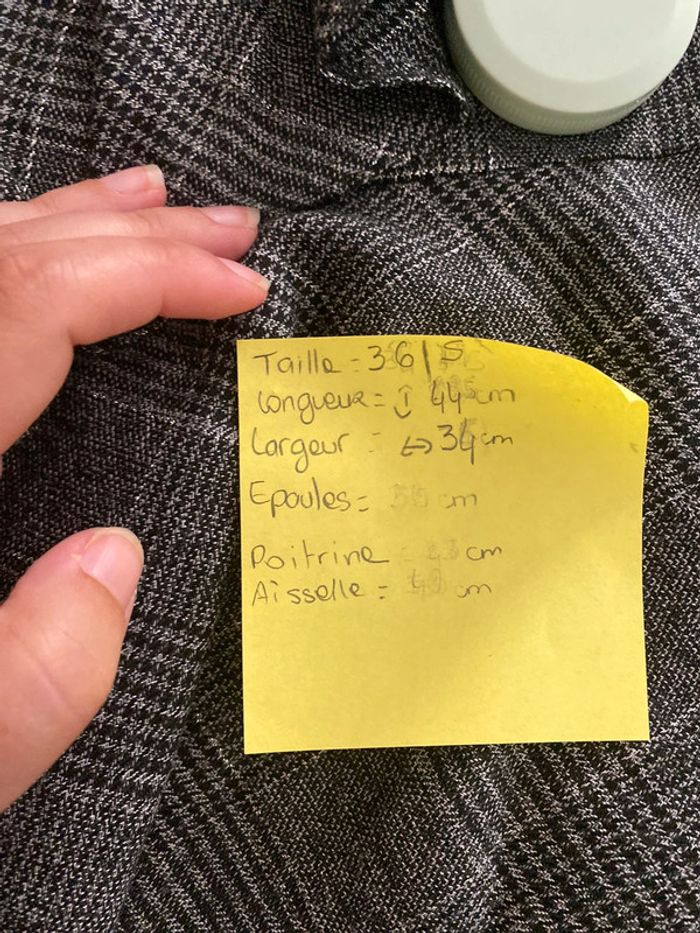 Taille = 36 / S
Longueur = ↕ 44 cm
Largeur = ↔ 34 cm
Epaules = cm
Poitrine = cm
Aisselle = cm